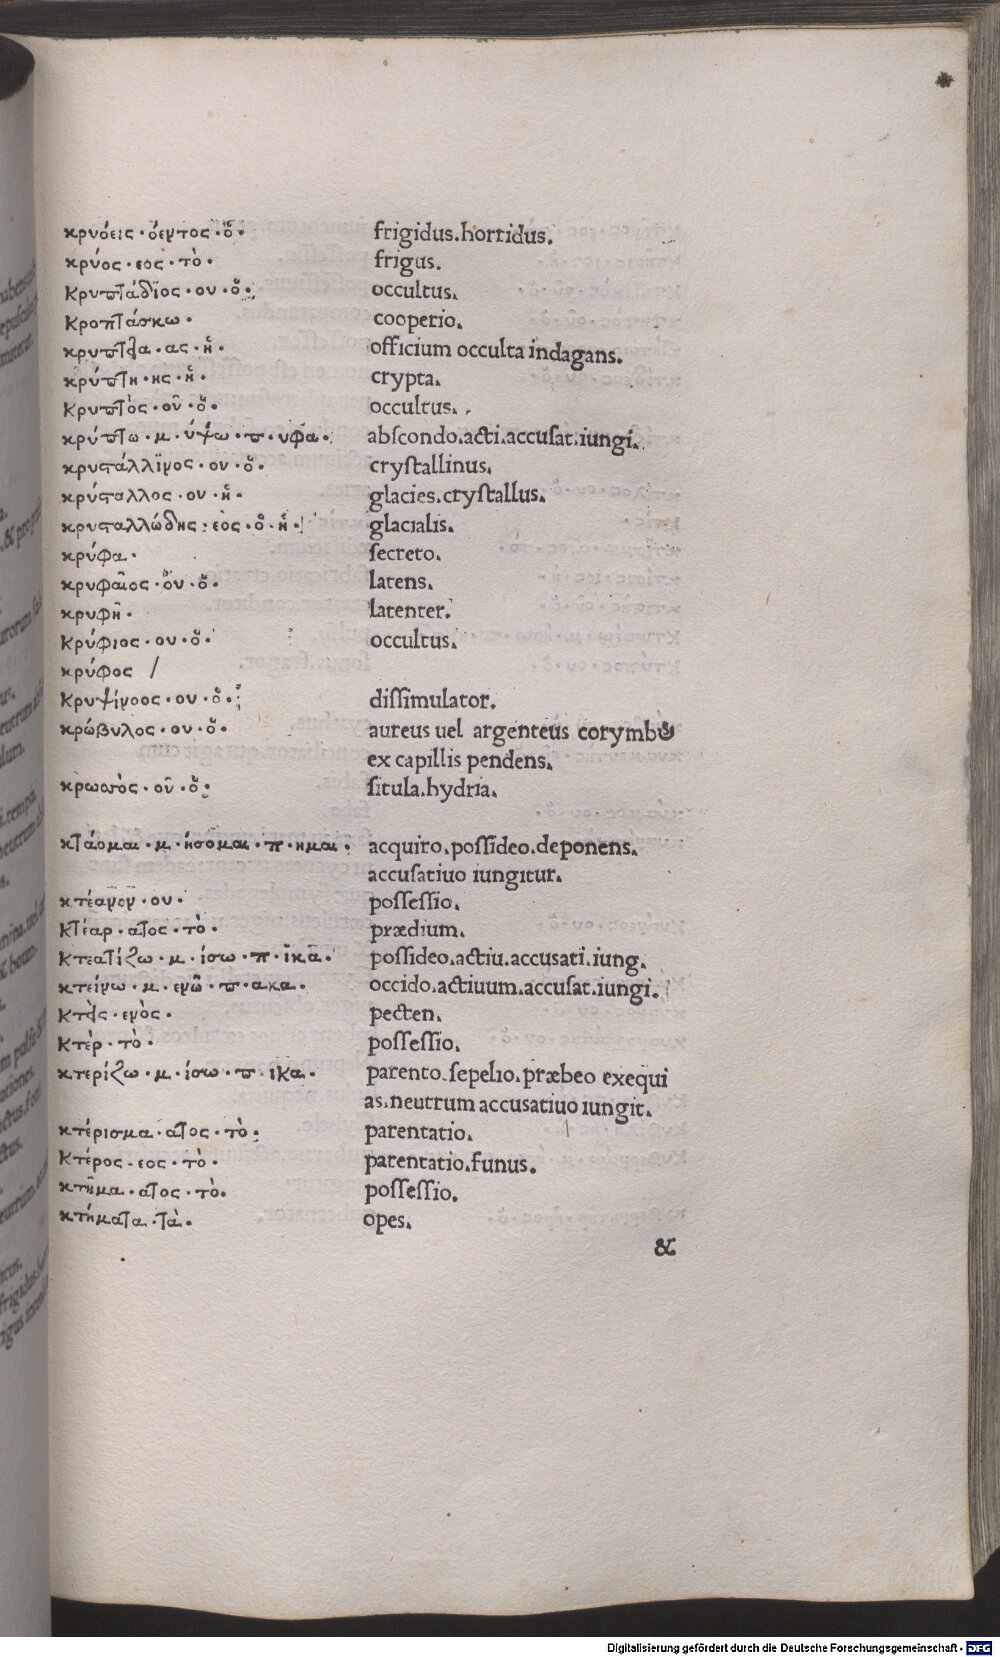 κρυόεις · όεντος · ὁ · frigidus.horridus.
κρύος · εος · τὸ · frigus.
κρυπτάδϊος · ου · ὁ · occultus.
κροπτάσκω · cooperio.
κρυπτεία · ας · ἡ · officium occulta indagans.
κρύπτη · ης · ἡ · crypta.
κρυπτὸς · οῦ · ὁ · occultus.
κρύπτω · μ · ύψω · π · υφα · abſcondo.acti.accuſat.iungi.
κρυστάλλϊνος · ου · ὁ · cryſtallinus.
κρύσταλλος · ου · ἡ · glacies.cryſtallus.
κρυσταλλώδης · εος · ὁ · ἡ · glacialis.
κρύφα · ſecreto.
κρυφαῖος · ου · ὁ · latens.
κρυφῆ · latenter.
κρύφιος · ου · ὁ · occultus.
κρύφος /
κρυψίνοος · ου · ὁ · diſſimulator.
κρώβυλος · ου · ὁ · aureus uel argenteus corymbꝰ
ex capillis pendens.
κρωσσὸς · οῦ · ὁ · ſitula.hydria.
κτάομαι · μ · ήσομαι · π · ημαι · acquiro.poſſideo.deponens.
accuſatiuo iungitur.
κτέανον · ου · poſſeſſio.
κτέαρ · ατος · τὸ · prædium.
κτεατίζω · μ · ίσω · π · ϊκα · poſſideo.actiu.accuſati.iung.
κτείνω · μ · ενῶ · π · ακα · occido.actiuum.accuſat.iungi.
κτεὶς · ενὸς · pecten.
κτὲρ · τὸ · poſſeſſio.
κτερίζω · μ · ίσω · π · ικα · parento.ſepelio.præbeo exequi
as.neutrum accusatiuo iungit.
κτέρισμα · ατος · τὸ · parentatio.
κτέρος · εος · τὸ · parentatio.funus.
κτῆμα · ατος · τὸ · poſſeſſio.
κτήματα · τὰ · opes.
&
Digitalisierung gefördert durch die Deutsche Forschungsgemeinschaft - DFG